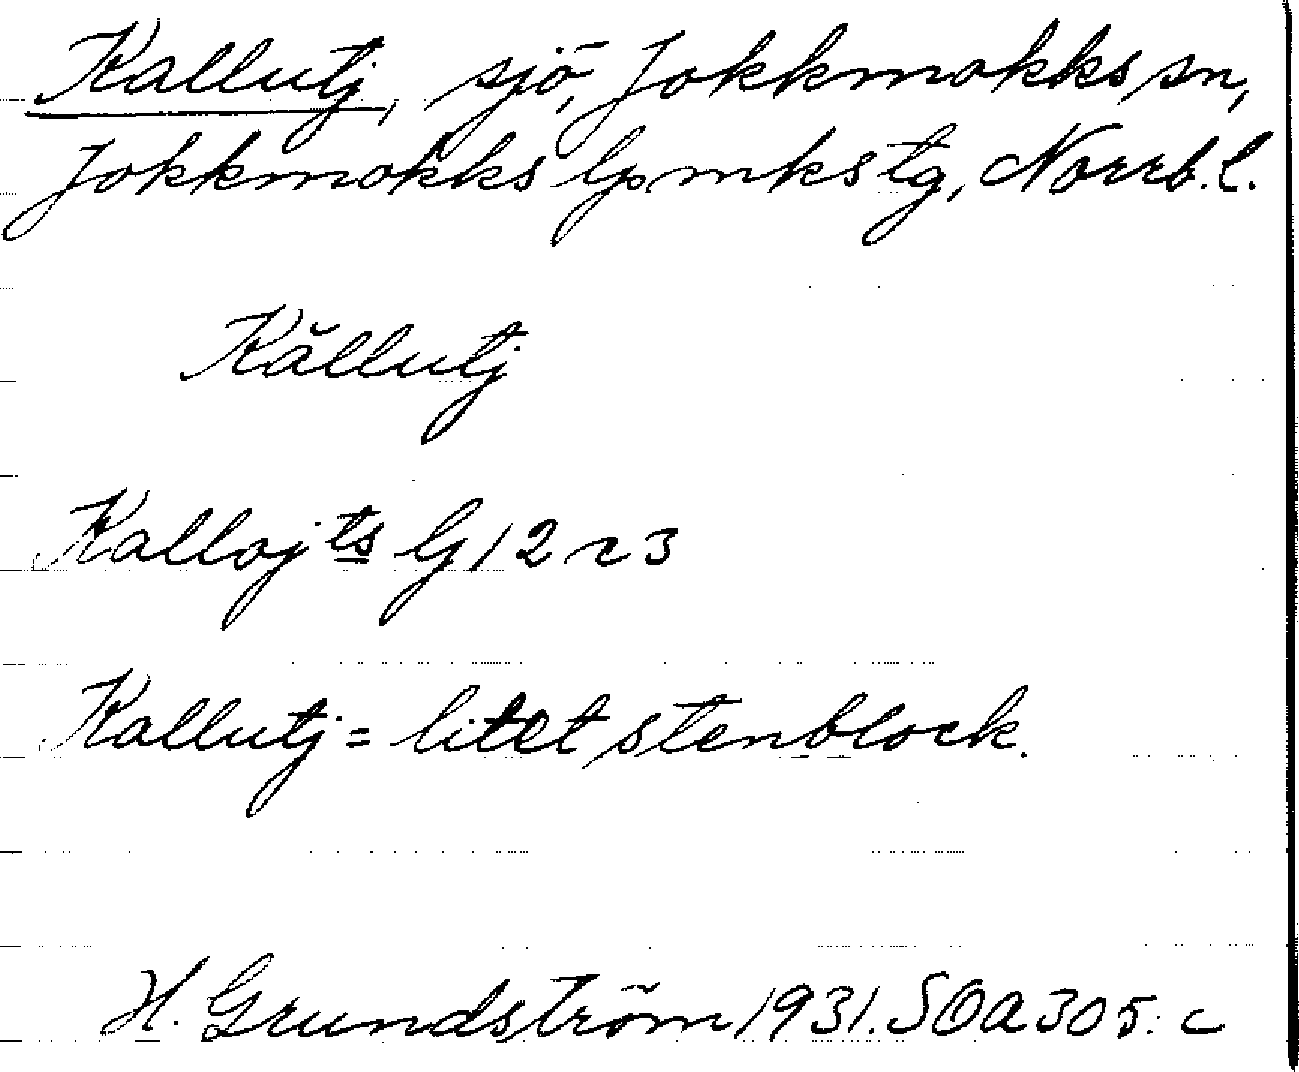 Kallutj, sjö, Jokkmokks sn,
Jokkmokks lpmks tg, Norrb. l.
Kăllutj
Kallojts G 12 r 3
Kallutj = litet stenblock.
H. Grundström 1931. SOA 305: c